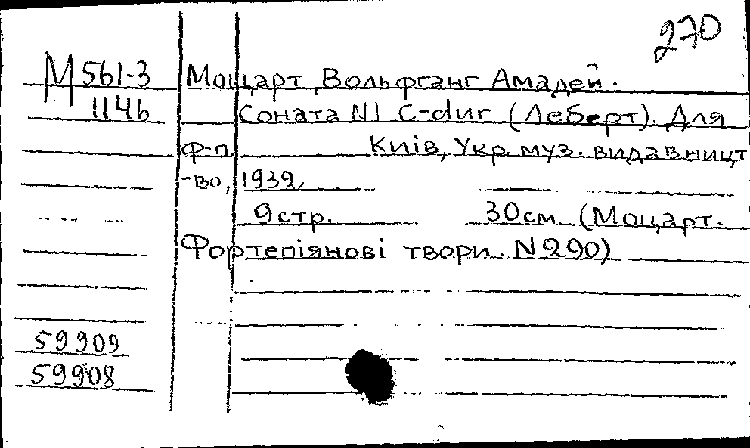 270
М561-3 Моцарт, Вольфганг Амадей.
1146 Соната N1 C-dur (Леберт). Для
ф-п. Київ, Укр. муз. видавницт
-во, 1939
9 стр. 30 см. (Моцарт.
Фортепіянові твори. N290)
59909
59908